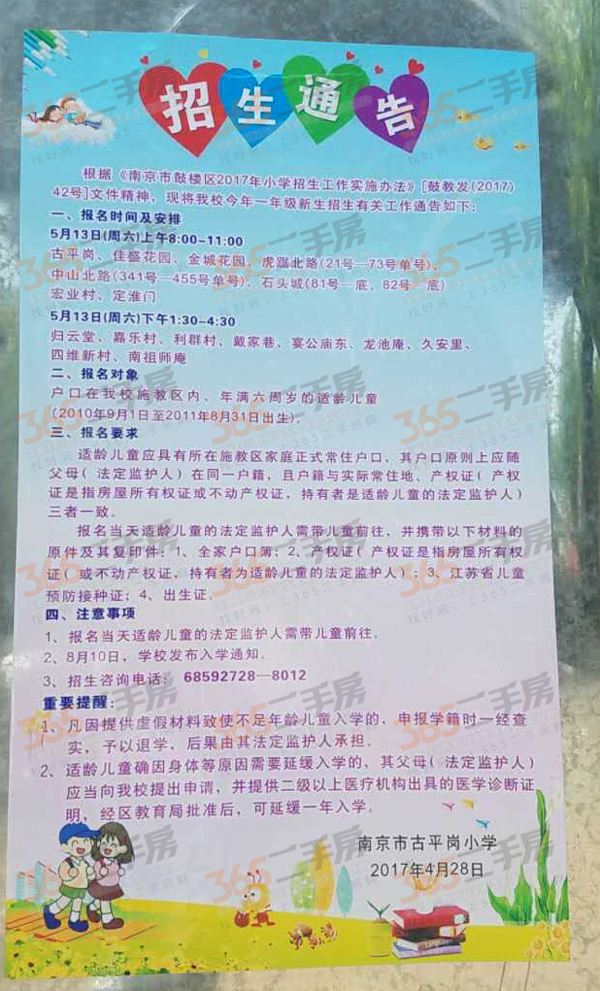 招生通告
根据《南京市鼓楼区2017年小学招生工作实施办法》[鼓教发(2017)
42号]文件精神，现将我校今年一年级新生招生有关工作通告如下：
一、报名时间及安排
5月13日(周六)上午8:00-11:00
古平岗、佳盛花园、金城花园、虎踞北路(21号—73号单号)、
中山北路(341号—455号单号)、石头城(81号—底，82号—底)
宏业村、定淮门
5月13日(周六)下午1:30-4:30
归云堂、嘉乐村、利群村、戴家巷、宴公庙东、龙池庵、久安里、
四维新村、南祖师庵
二、报名对象
户口在我校施教区内、年满六周岁的适龄儿童
(2010年9月1日至2011年8月31日出生)。
三、报名要求
适龄儿童应具有所在施教区家庭正式常住户口，其户口原则上应随
父母(法定监护人)在同一户籍，且户籍与实际常住地、产权证(产权
证是指房屋所有权证或不动产权证，持有者是适龄儿童的法定监护人)
三者一致。
报名当天适龄儿童的法定监护人需带儿童前往，并携带以下材料的
原件及其复印件：1、全家户口簿；2、产权证(产权证是指房屋所有权
证(或不动产权证，持有者为适龄儿童的法定监护人)；3、江苏省儿童
预防接种证；4、出生证。
四、注意事项
1、报名当天适龄儿童的法定监护人需带儿童前往。
2、8月10日，学校发布入学通知。
3、招生咨询电话：68592728—8012
重要提醒：
1、凡因提供虚假材料致使不足年龄儿童入学的，申报学籍时一经查
实，予以退学，后果由其法定监护人承担。
2、适龄儿童确因身体等原因需要延缓入学的，其父母(法定监护人)
应当向我校提出申请，并提供二级以上医疗机构出具的医学诊断证
明，经区教育局批准后，可延缓一年入学。
南京市古平岗小学
2017年4月28日
365二手房
找好房，上365二手房网